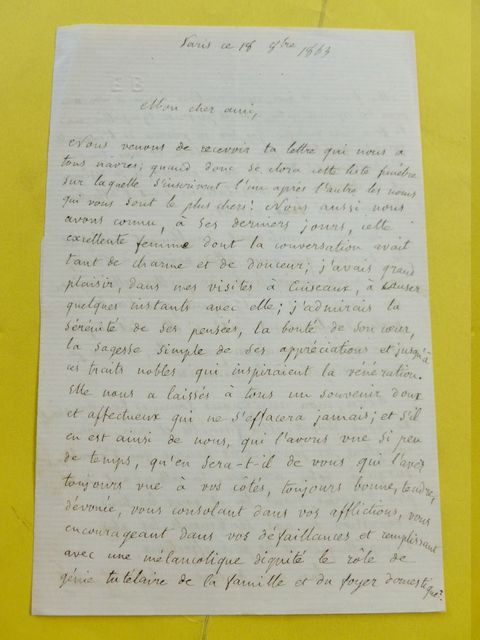 Paris ce 18 9bre 1863
Mon cher ami,
Nous venons de recevoir ta lettre qui nous a
tous navrés; quand donc se clora cette liste funèbre
sur laquelle s'inscrivent l'un après l'autre les noms
qui vous sont le plus chers! Nous aussi nous
avons connu, à ses derniers jours, cette
excellente femme dont la conversation avait
tant de charme et de douceur; j'avais grand
plaisir, dans mes visites à Cuiseaux, à causer
quelques instants avec elle; j'admirais la
sérénité de ses pensées, la bonté de son cœur,
la sagesse simple de ses appréciations et jusqu'à
ces traits nobles qui inspiraient la vénération.
Elle nous a laissés à tous un souvenir doux
et affectueux qui ne s'effacera jamais; et s'il
en est ainsi de nous, qui l'avons vue si peu
de temps, qu'en sera-t-il de vous qui l'avez
toujours vue à vos côtés, toujours bonne, tendre,
dévouée, vous consolant dans vos afflictions, vous
encourageant dans vos défaillances et remplissant
avec une mélancolique dignité le rôle de
génie tutélaire de la famille et du foyer domestique?